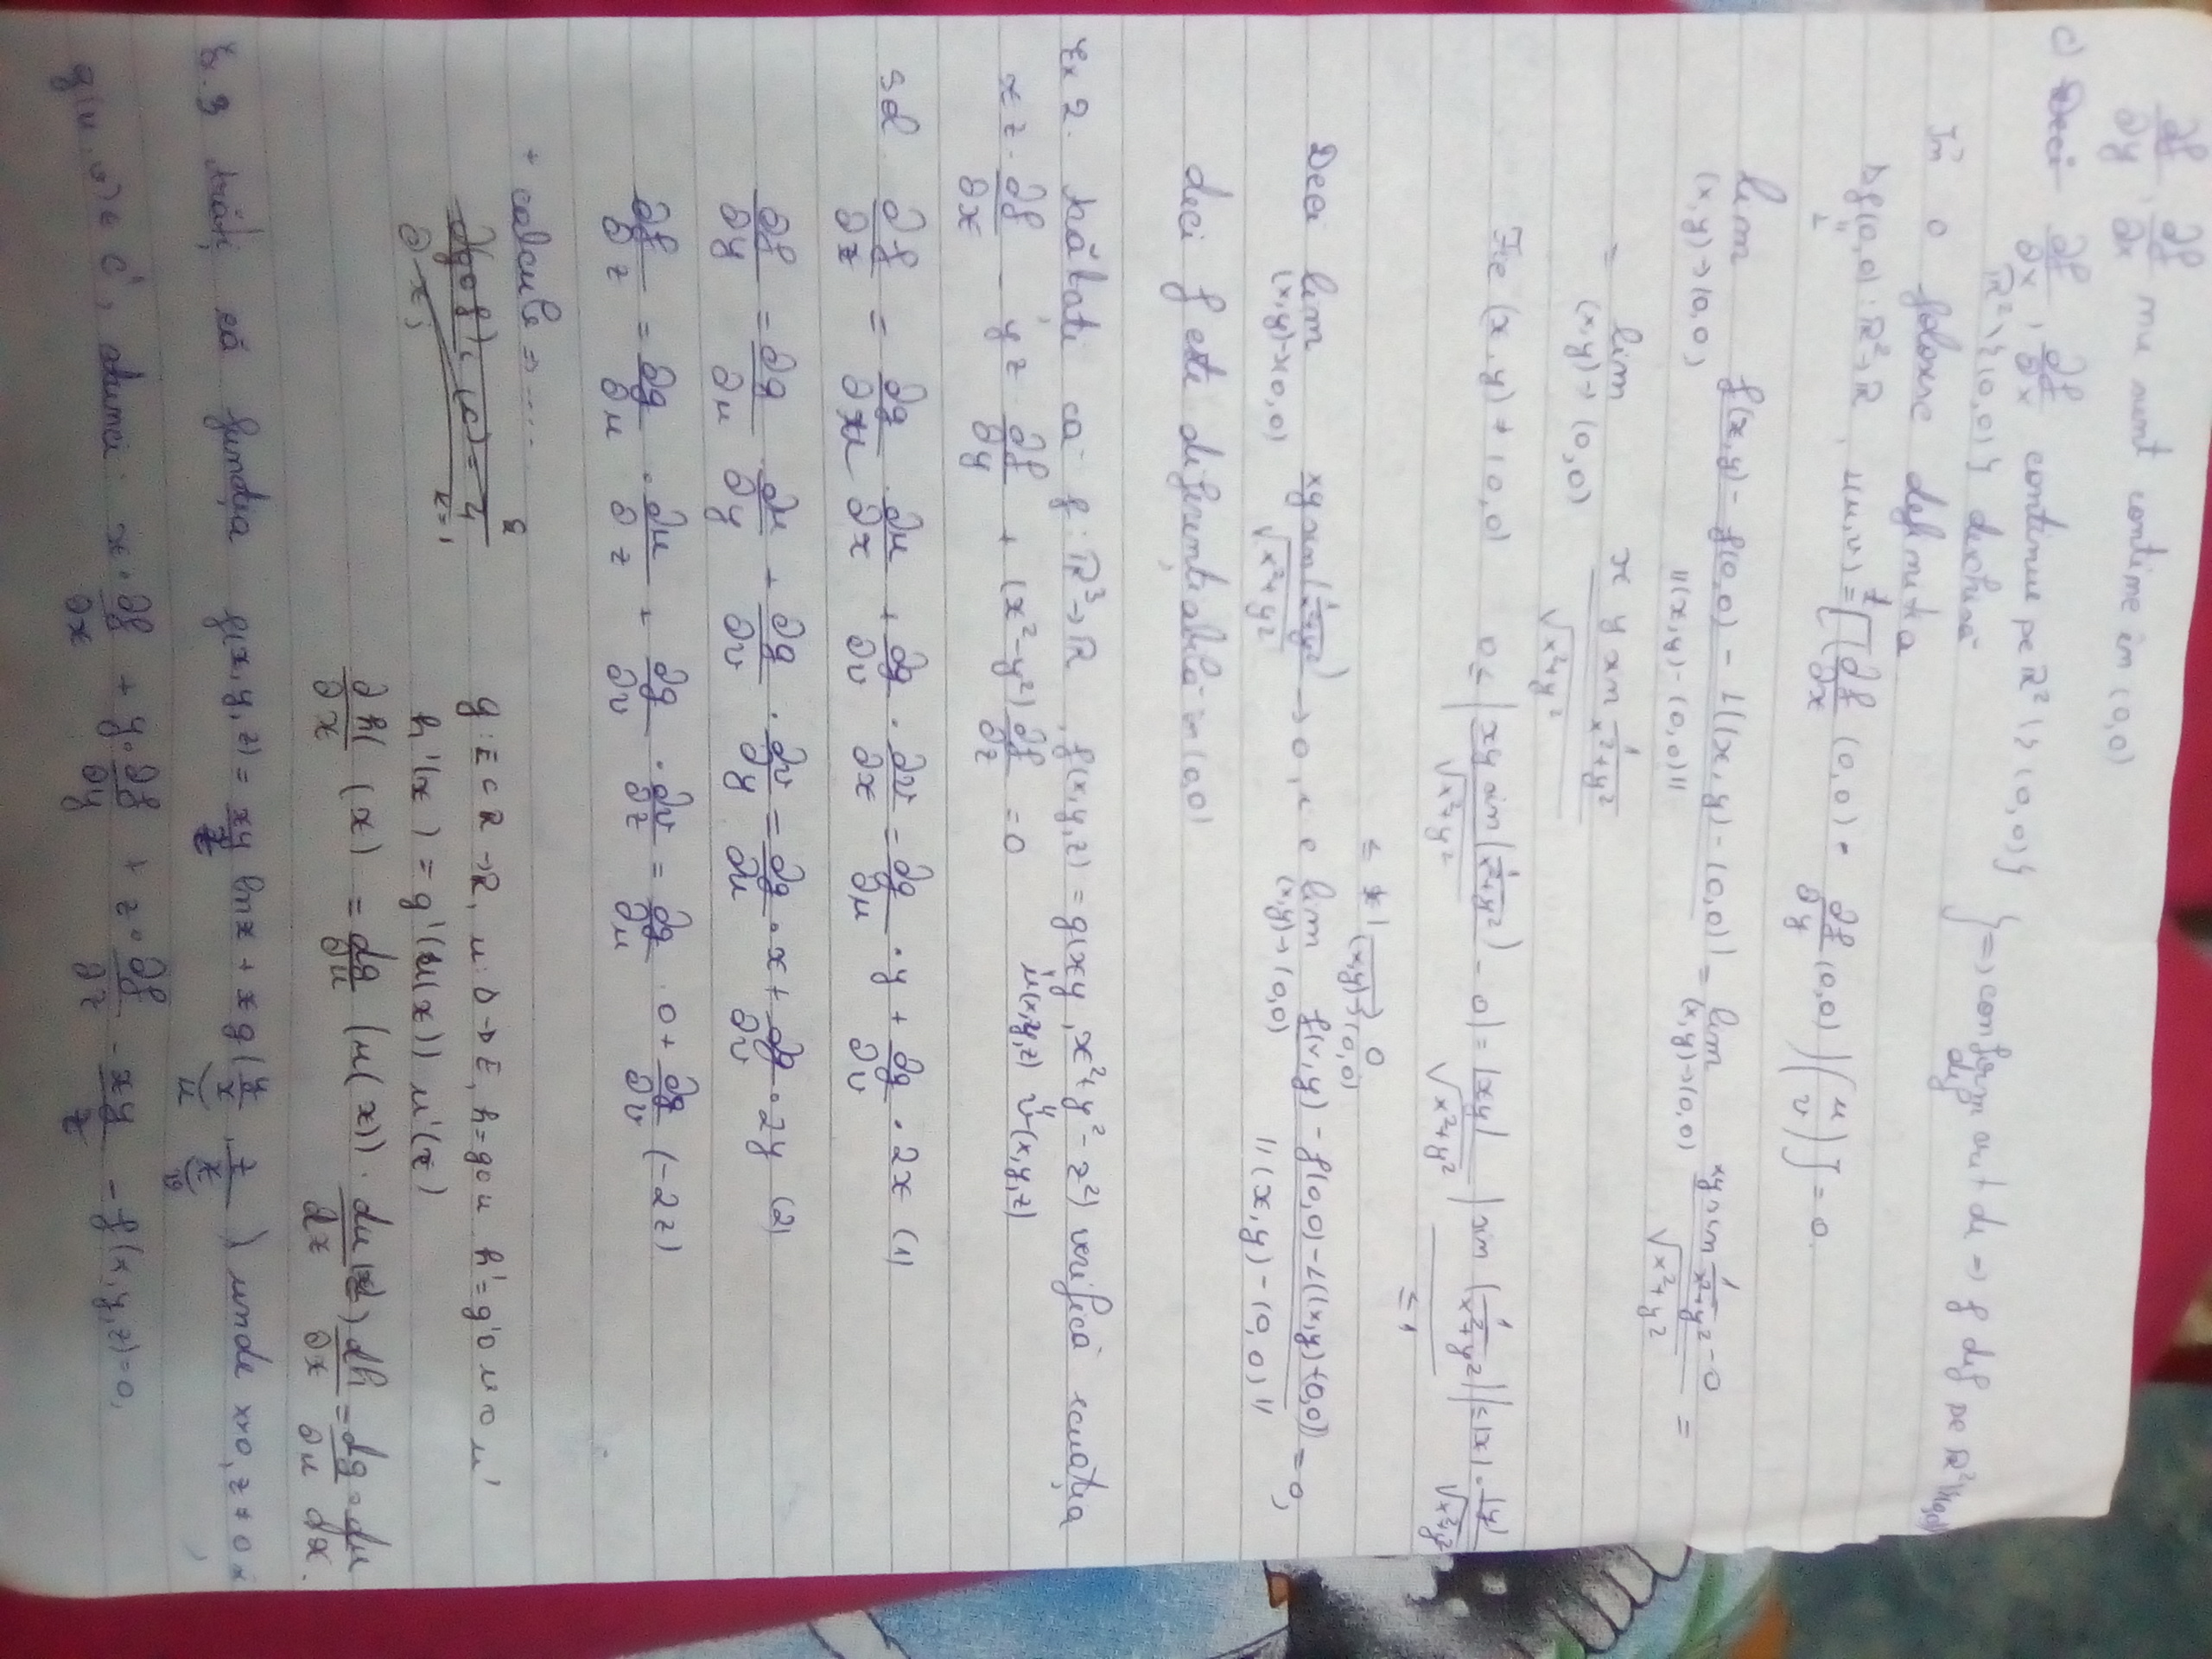 ∂f/∂y , ∂f/∂x nu sunt continue în (0,0)
c) Deci ∂f/∂x , ∂f/∂x continue pe R² \ {(0,0)}
R² \ {(0,0)} deschisă } => conform crit de => f dif pe R² \ {(0,0)}
În 0 folosesc definiția
Df(0,0) : R² → R , L(u,v) = [(∂f/∂x (0,0) · ∂f/∂y (0,0)) (u v)] = 0
L
lim (x,y)→(0,0) f(x,y) - f(0,0) - L((x,y) - (0,0)) / ||(x,y) - (0,0)|| = lim (x,y)→(0,0) xy sin 1/(x²+y²) - 0 / √x²+y² =
= lim (x,y)→(0,0) x y sin 1/(x²+y²) / √x²+y²
Fie (x,y) ≠ (0,0) 0 ≤ | xy sin(1/(x²+y²)) / √x²+y² - 0 | = |xy| / √x²+y² | sin (1/(x²+y²)) | ≤ |x| · |y| / √x²+y²
≤ 1
≤ |x| → 0 (x,y)→(0,0)
Deci lim (x,y)→(0,0) xy sin(1/(x²+y²)) / √x²+y² → 0, i.e. lim (x,y)→(0,0) f(x,y) - f(0,0) - L((x,y)+(0,0)) / ||(x,y) - (0,0)|| = 0,
deci f este diferențiabilă în (0,0)
Ex 2. Arătați că f : R³ → R , f(x,y,z) = g(xy, x²+y²-z²) verifică ecuația
u(x,y,z) v(x,y,z)
xz · ∂f/∂x - yz ∂f/∂y + (x²-y²) ∂f/∂z = 0
Sol ∂f/∂x = ∂g/∂u · ∂u/∂x + ∂g/∂v · ∂v/∂x = ∂g/∂u · y + ∂g/∂v · 2x (1)
∂f/∂y = ∂g/∂u · ∂u/∂y + ∂g/∂v · ∂v/∂y = ∂g/∂u · x + ∂g/∂v · 2y (2)
∂f/∂z = ∂g/∂u · ∂u/∂z + ∂g/∂v · ∂v/∂z = ∂g/∂u · 0 + ∂g/∂v (-2z)
+ calcule => ....
g : E ⊂ R → R, u : D → E, h = g o u h' = g' o u o u'
h'(x) = g'(u(x)) u'(x)
∂h/∂x (x) = dg/du (u(x)) · du/dx (x) dh/∂x = dg/∂u · du/dx.
Ex. 3 Arăți că funcția f(x,y,z) = xy/z ln x + x g(y/x, z/x) unde x>0, z≠0 și
u v
g(u,v) ∈ C¹, atunci x · ∂f/∂x + y · ∂f/∂y + z · ∂f/∂z - xy/z - f(x,y,z)=0,